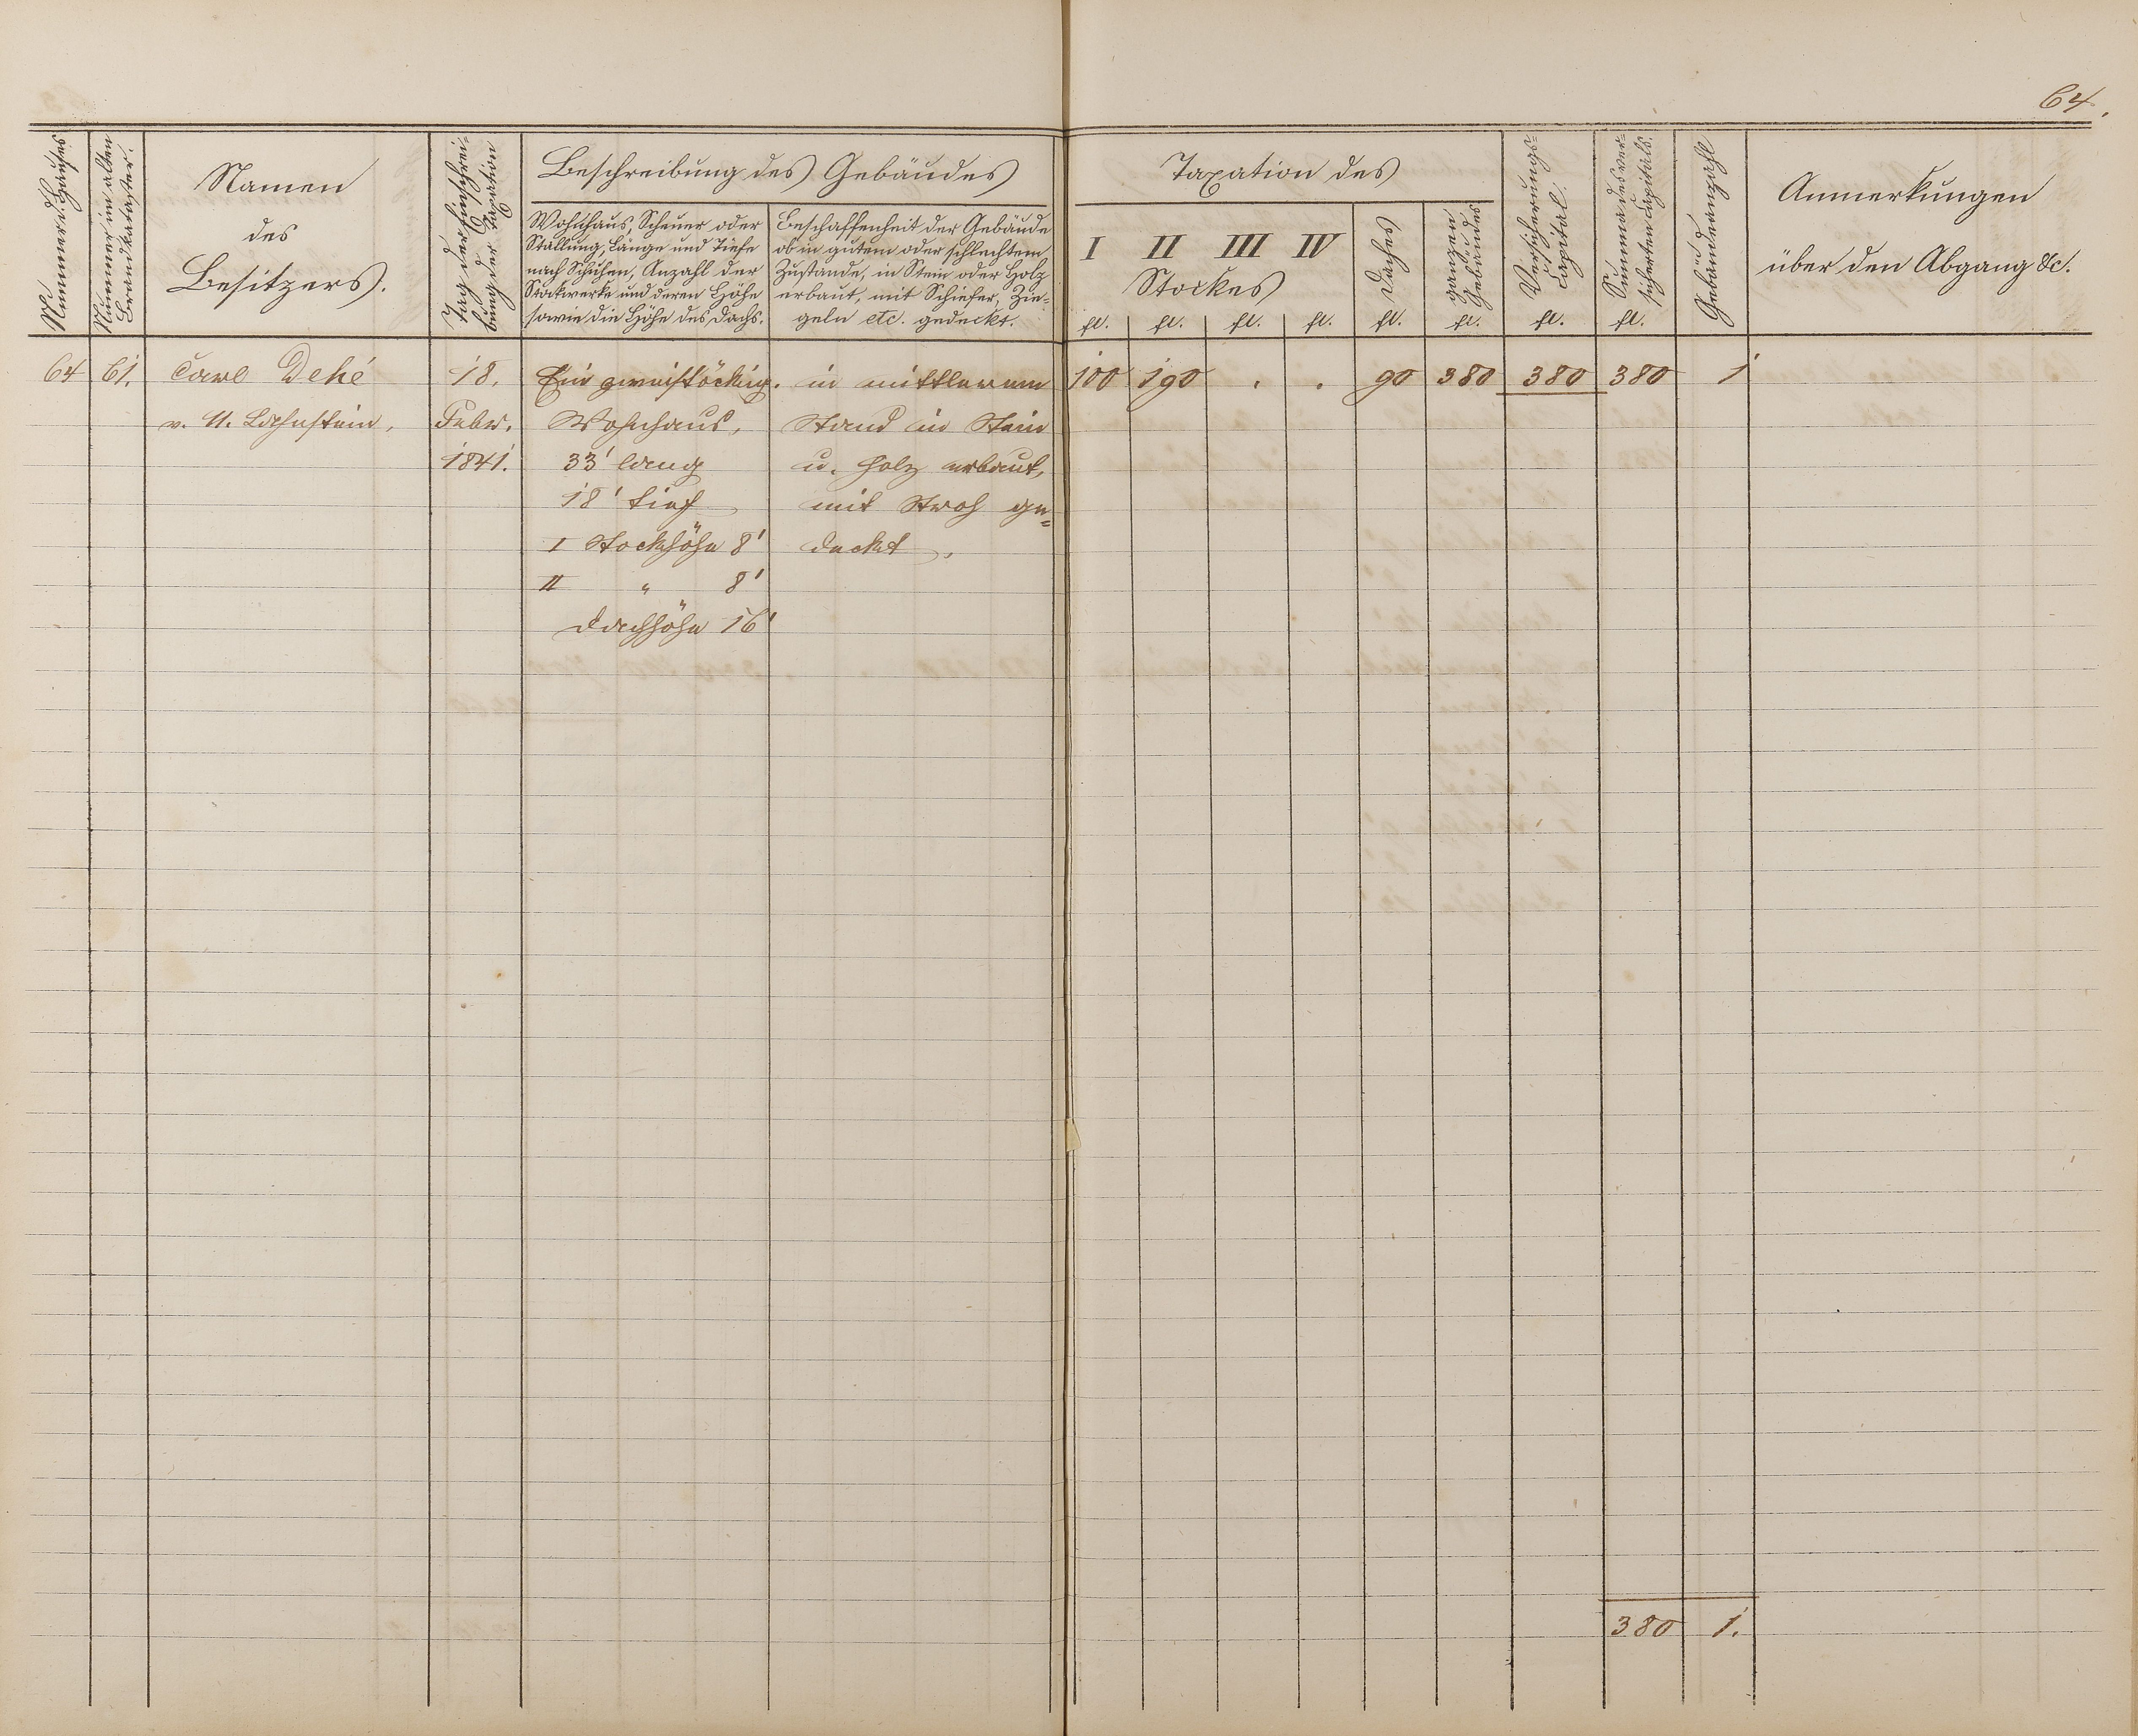 64.
Nummer d. Hauses
Nummer im alten
Brandkataster.
Namen
des
Besitzers.
Tag der Einschrei-
bung der Taxation
Beschreibung des Gebäudes
Wohnhaus, Scheuer oder
Stallung, Länge und Tiefe
nach Schuhen, Anzahl der
Stockwerke und deren Höhe
sowie die Höhe des Dachs.
Beschaffenheit der Gebäude
ob in gutem oder schlechtem
Zustande, in Stein oder Holz
erbaut, mit Schiefer, Zie-
geln etc. gedeckt.
Taxation des
I II III IV
Stockes
Daches
ganzen
Gebäudes
Versicherungs-
Capital.
Summa des ver-
sicherten Capitals.
Gebäudeanzahl
Anmerkungen
über den Abgang &c.
fl. fl. fl. fl. fl. fl. fl. fl.
64 61. Carl Dehé 18. Ein zweistöckig. in mittlerem 100 190 . . 90 380 380 380 1
v. N. Lahnstein, Febr. Wohnhaus, Stand in Stein
1841. 33' lang u. Holz erbaut,
18' tief mit Stroh ge=
I Stockhöhe 8' deckt.
II " 8'
Dachhöhe 16'
380 1.